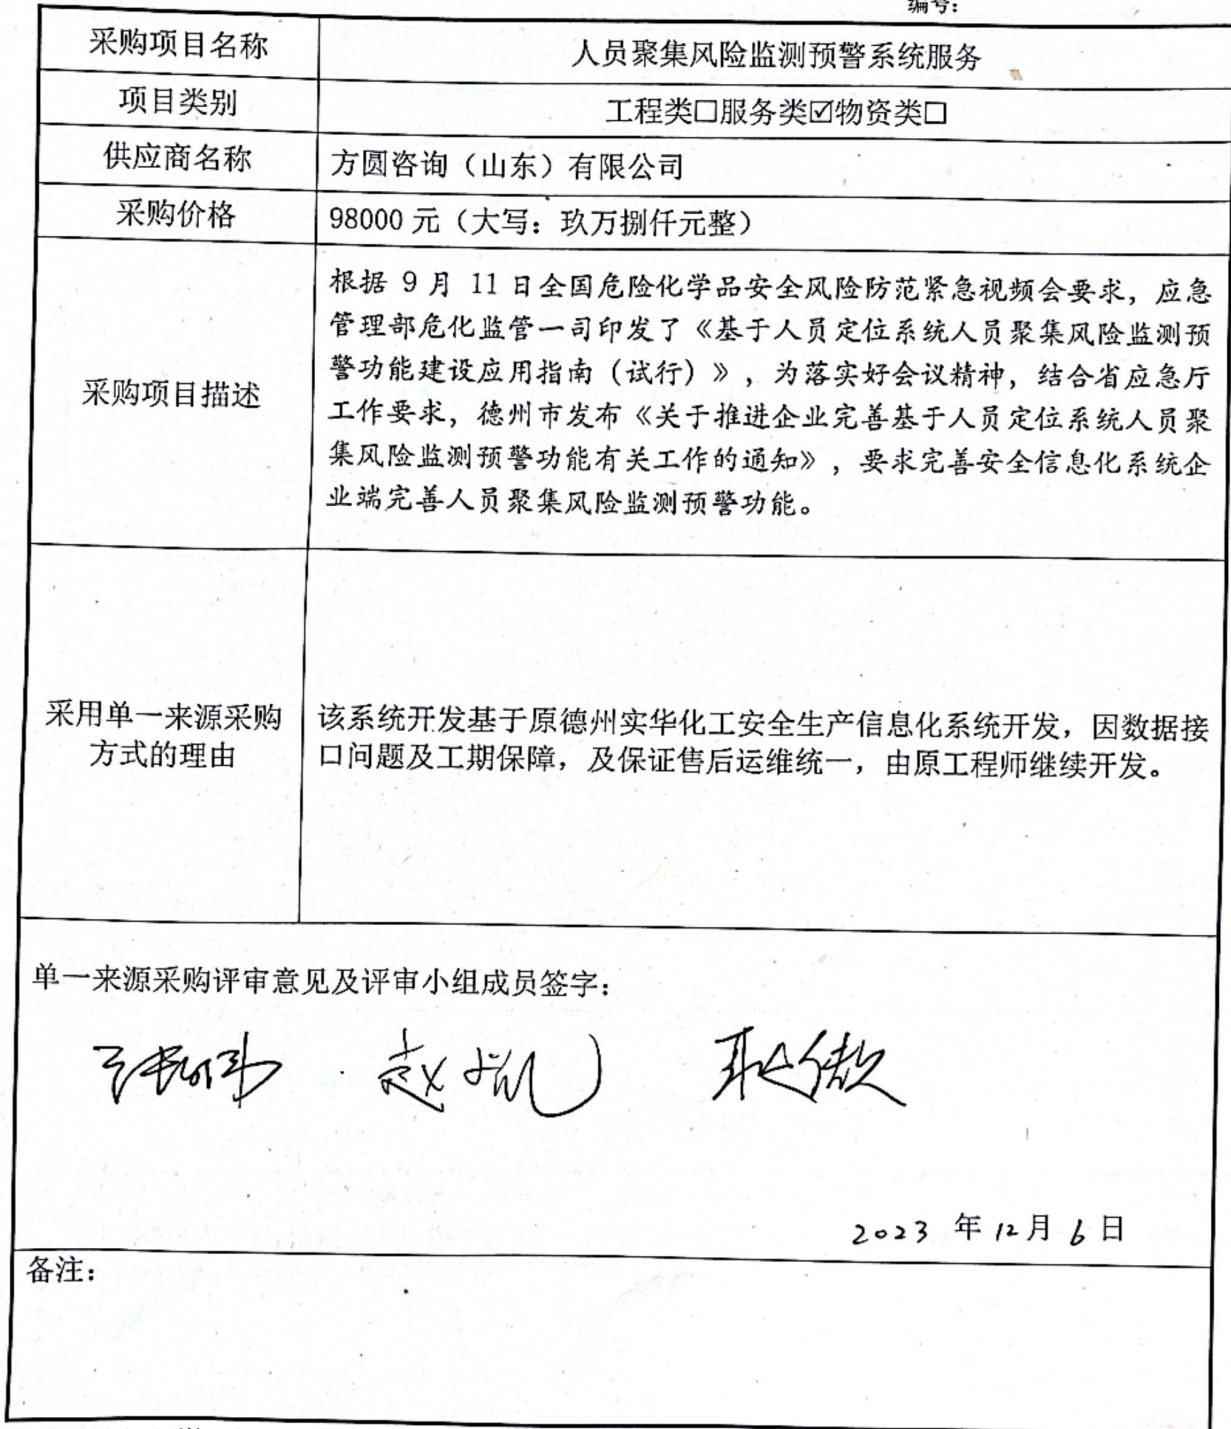 编号：
采购项目名称
人员聚集风险监测预警系统服务
项目类别
工程类☐服务类☑物资类☐
供应商名称
方圆咨询（山东）有限公司
采购价格
98000 元（大写：玖万捌仟元整）
采购项目描述
根据 9 月 11 日全国危险化学品安全风险防范紧急视频会要求，应急
管理部危化监管一司印发了《基于人员定位系统人员聚集风险监测预
警功能建设应用指南（试行）》，为落实好会议精神，结合省应急厅
工作要求，德州市发布《关于推进企业完善基于人员定位系统人员聚
集风险监测预警功能有关工作的通知》，要求完善安全信息化系统企
业端完善人员聚集风险监测预警功能。
采用单一来源采购
方式的理由
该系统开发基于原德州实华化工安全生产信息化系统开发，因数据接
口问题及工期保障，及保证售后运维统一，由原工程师继续开发。
单一来源采购评审意见及评审小组成员签字：
2023 年 12 月 6 日
备注：